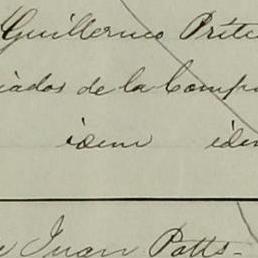 Guillermo Pritc
iados de la Comp
idem iden
Juan Potts